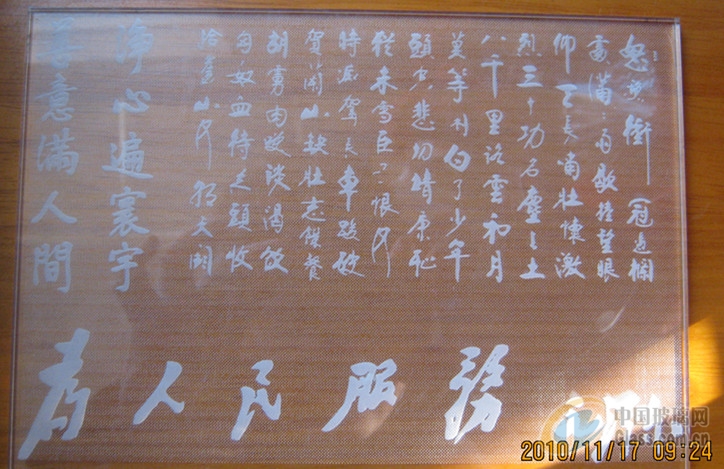 怒髮衝冠憑欄
處瀟瀟雨歇抬望眼
仰天長嘯壯懷激
烈三十功名塵與土
八千里路雲和月
莫等閒白了少年
頭空悲切靖康恥
猶未雪臣子恨何
時滅駕長車踏破
賀蘭山缺壯志饑餐
胡虜肉笑談渴飲
匈奴血待從頭收
拾舊山河朝天闕
淨心遍寰宇
善意滿人間
為人民服務
中国玻璃网
Glass.com.cn
2010/11/17 09:24